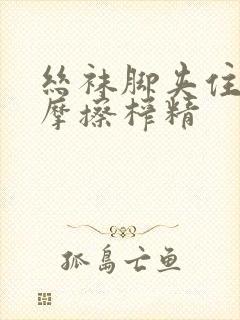 丝袜脚夹住
摩擦榨精
孤岛亡鱼